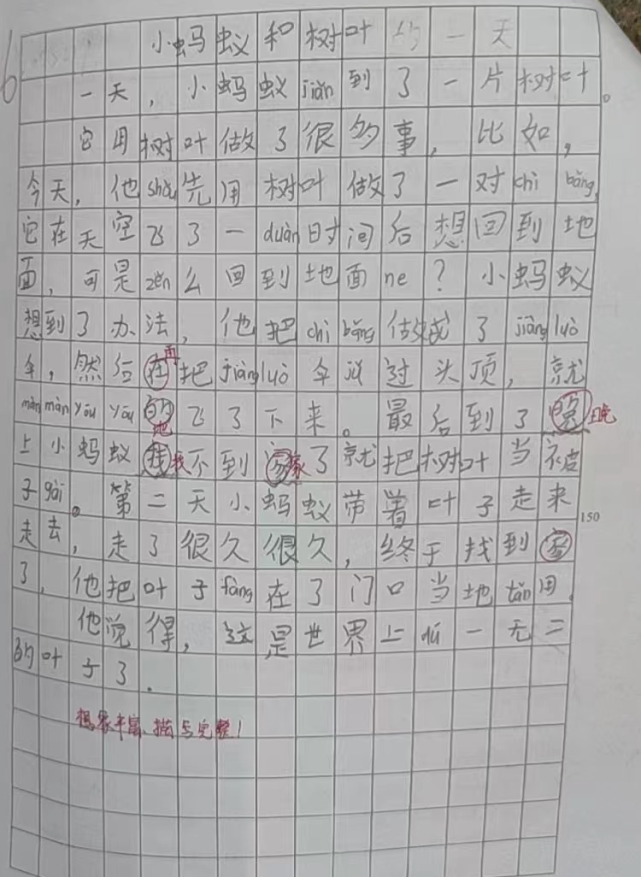 小蚂蚁和树叶的一天
一天，小蚂蚁jiǎn到了一片树叶。
它用树叶做了很多事，比如，
今天，他shǒu先用树叶做了一对chì bǎng，
它在天空飞了一duàn时间后想回到地
面，可是zěn么回到地面ne？小蚂蚁
想到了办法，他把chì bǎng做成了jiàng luò
伞，然后在再把jiàng luò伞 过头顶，就
màn màn yōu yōu的地飞了下来。最后到了晚
上小蚂蚁找不到家家了就把树叶当被
子gài。第二天小蚂蚁带着叶子走来
走去，走了很久很久，终于找到家
了，他把叶子fàng在了门口当地tǎn用。
他觉得，这是世界上dú一无二
的叶子了.
想象丰富、描写完整！
150